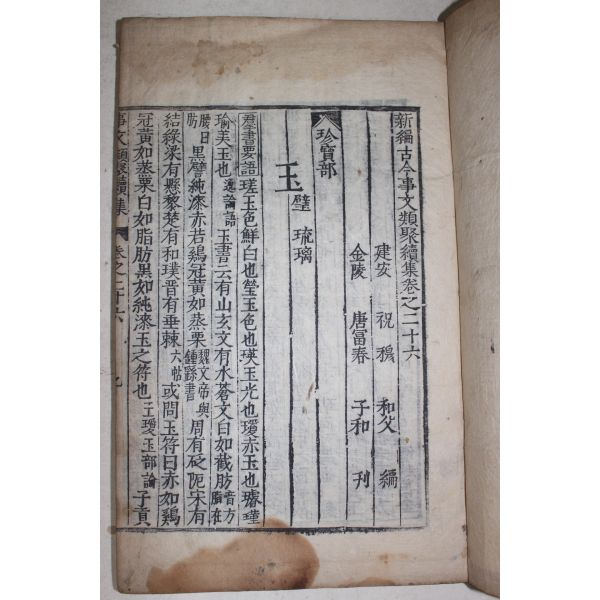 新編古今事文類聚續集卷之二十六
建安 祝穆 和父 編
金陵 唐富春 子和 刊
珍寶部
玉 璧 琉璃
羣書要語 瑳玉色鮮白也瑩玉色也瑛玉光也瓊赤玉也璿瑾
瑜美玉也 逸論語 玉書云有山玄文有水蒼文白如截肪 音方脂在腰曰肪
黑譬純漆赤若鷄冠黃如蒸栗 魏文帝與鍾繇書 周有砥阨宋有
結綠梁有懸黎楚有和璞晋有垂棘 六帖 或問玉符曰赤如鷄
冠黃如蒸栗白如脂肪黑如純漆玉之符也 王瓊玉部論 子貢
事文類聚續集 卷之二十六